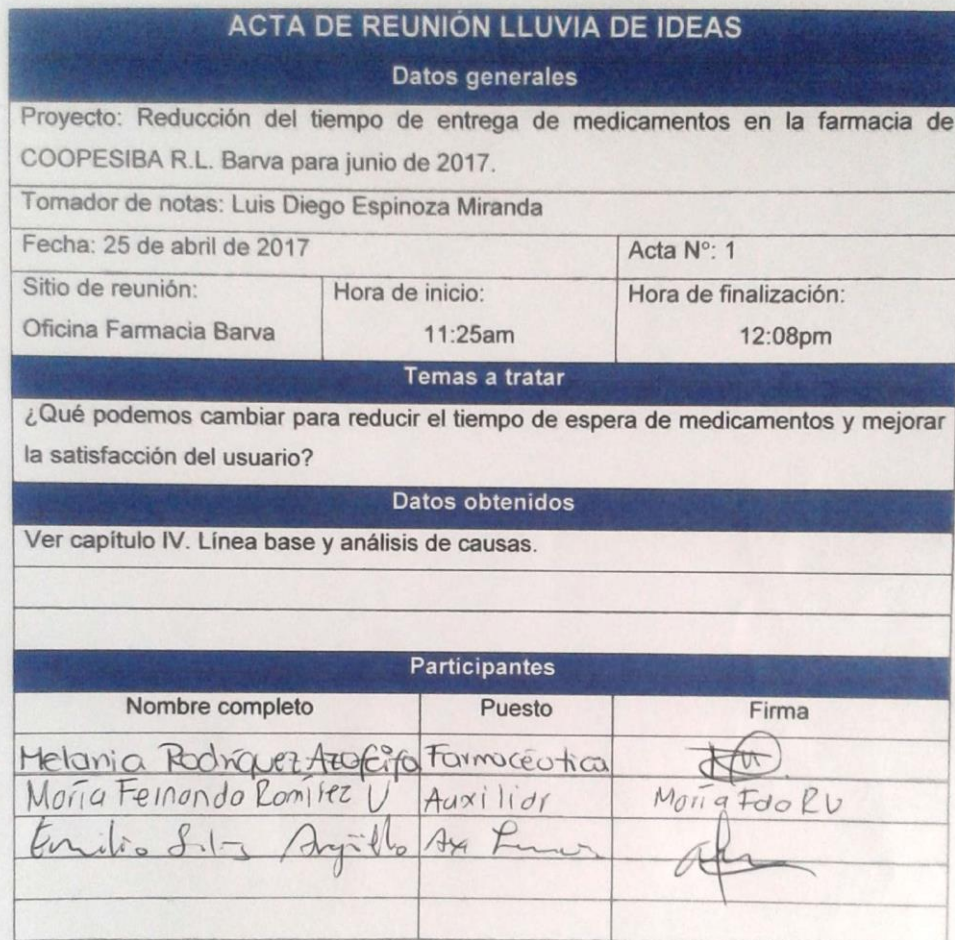 ACTA DE REUNIÓN LLUVIA DE IDEAS
Datos generales
Proyecto: Reducción del tiempo de entrega de medicamentos en la farmacia de
COOPESIBA R.L. Barva para junio de 2017.
Tomador de notas: Luis Diego Espinoza Miranda
Fecha: 25 de abril de 2017 Acta Nº: 1
Sitio de reunión: Hora de inicio: Hora de finalización:
Oficina Farmacia Barva 11:25am 12:08pm
Temas a tratar
¿Qué podemos cambiar para reducir el tiempo de espera de medicamentos y mejorar
la satisfacción del usuario?
Datos obtenidos
Ver capítulo IV. Línea base y análisis de causas.
Participantes
Nombre completo Puesto Firma
Melania Rodríguez Azofeifa Farmacéutica
María Fernanda Ramírez U Auxiliar María Fda RU
Emilio Argüello